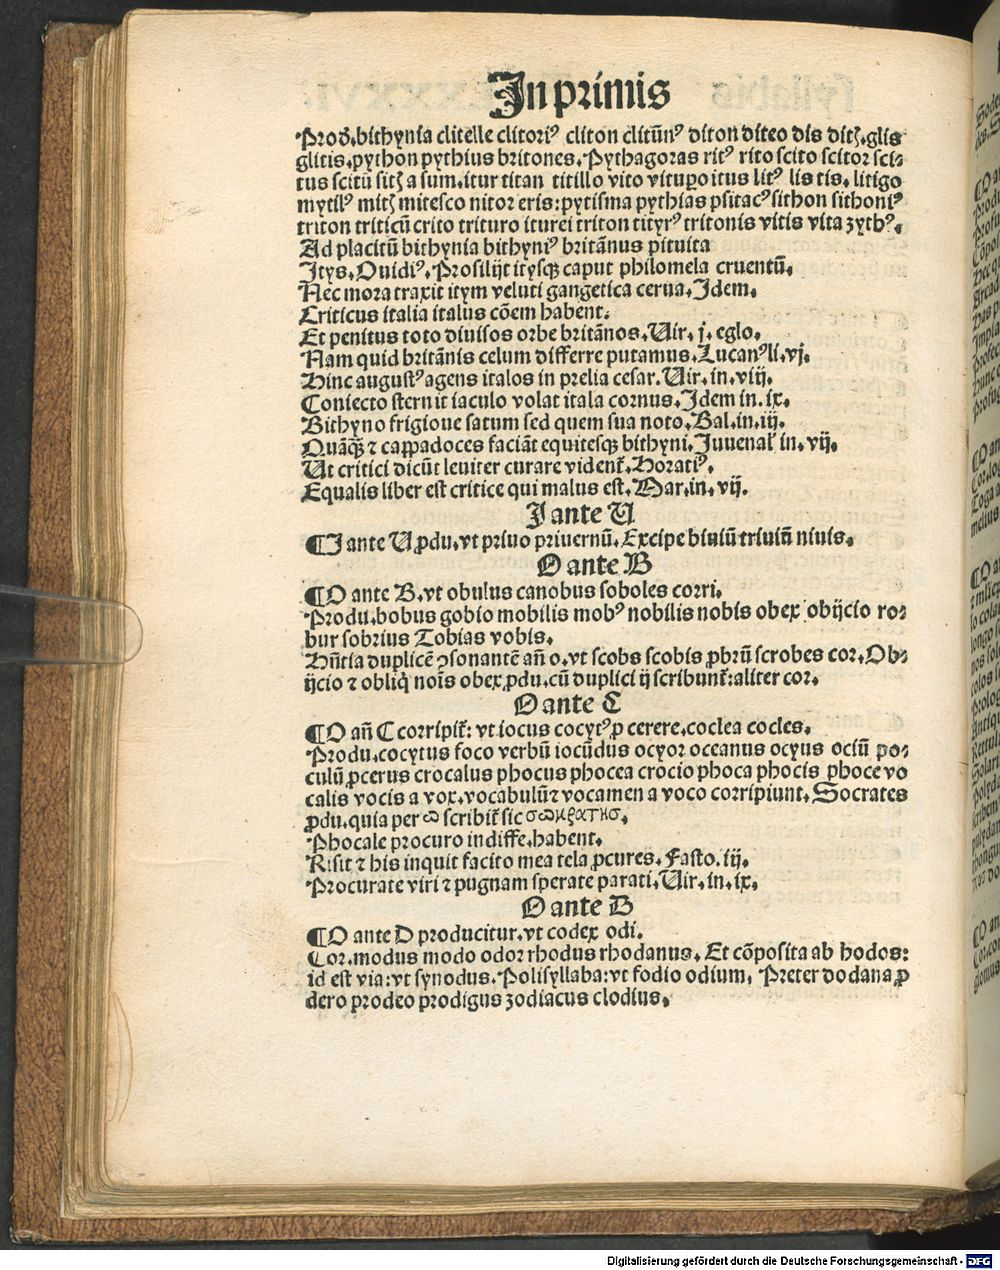 In primis
Prod̄.bithynia clitelle clitoriꝰ cliton clitūnꝰ diton diteo dis ditꝫ.glis
glitis.python pythius britones.Pythagoras ritꝰ rito scito scitor sci⸗
tus scitū sitꝫ a sum.itur titan titillo vito vitupo itus litꝰ lis tis.litigo
mytilꝰ mitꝫ mitesco nitor eris:pytisma pythias psitacꝰ sithon sithoniꝰ
triton triticū crito trituro iturei triton tityrꝰ tritonis vitis vita zythꝰ.
Ad placitū bithynia bithyniꝰ britānus pituita
Itys.Ouidiꝰ.Prosilijt itysqꝫ caput philomela cruentū.
Nec mora traxit itym veluti gangetica cerua.Idem.
Criticus italia italus cōem habent.
Et penitus toto diuisos orbe britānos.Uir.j.eglo.
Nam quid britānis celum differre putamus.Lucanꝰ li.vj.
Hinc augustꝰ agens italos in prelia cesar.Uir.in.viij.
Coniecto sternit iaculo volat itala cornus.Idem in.ix.
Bithyno frigioue satum sed quem sua noto.Bal.in.iij.
Quāqꝫ ⁊ cappadoces faciāt equitesqꝫ bithyni.Iuuenal' in.vij.
Ut critici dicūt leuiter curare vident̄.Horatiꝰ.
Equalis liber est critice qui malus est.Mar.in.vij.
I ante U
¶I ante U ꝓdu.vt priuo priuernū.Excipe biuiū triuiū niuis.
O ante B
¶O ante B.vt obulus canobus soboles corri.
Produ.bobus gobio mobilis mobꝰ nobilis nobis obex obijcio ro⸗
bur sobrius Tobias vobis.
Hn̄tia duplicē ↄsonantē an̄ o.vt scobs scobis ꝓbrū scrobes cor.Ob⸗
ijcio ⁊ obliq̄ nois obex ꝓdu.cū duplici ij scribunt̄:aliter cor.
O ante C
¶O an̄ C corripit̄: vt iocus cocytꝰ ꝓ cerere.coclea cocles.
Produ.cocytus foco verbū iocūdus ocyor oceanus ocyus ociū po⸗
culū ꝓcerus crocalus phocus phocea crocio phoca phocis phoce vo
calis vocis a vox.vocabulū ⁊ vocamen a voco corripiunt.Socrates
ꝓdu.quia per ω scribit̄ sic σωκρατησ.
Phocale procuro indiffe.habent.
Risit ⁊ his inquit facito mea tela ꝓcures.Fasto.iij.
Procurate viri ⁊ pugnam sperate parati.Uir.in.ix.
O ante D
¶O ante D producitur.vt codex odi.
Cor.modus modo odor rhodus rhodanus.Et cōposita ab hodos:
id est via:vt synodus.Polisyllaba:vt fodio odium.Preter dodana ꝓ
dero prodeo prodigus zodiacus clodius.
Digitalisierung gefördert durch die Deutsche Forschungsgemeinschaft - DFG